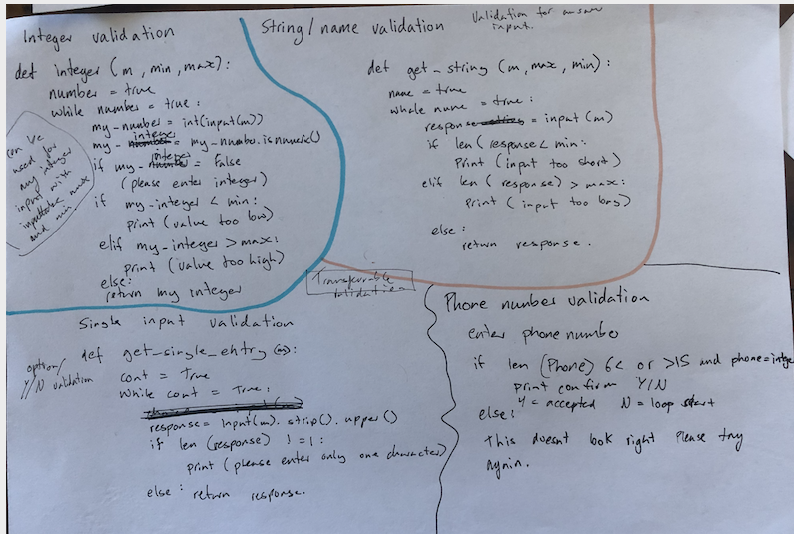 Integer validation
def integer (m, min, max):
number = true
while number = true:
my-number = int(input(m))
my-integer = my-number.isnumeric()
if my-integer = False
(please enter integer)
if my-integer < min:
print (value too low)
elif my-integer > max:
print (value too high)
else:
return my integer
can be
used for
any integer
input with
max
and min
String/name validation
Validation for
input.
def get_string (m, max, min):
name = true
while name = true:
response = input (m)
if len (response < min:
Print (input too short)
elif len (response) > max:
Print (input too long)
else:
return response.
Transferable
validation
Single input validation
option/
Y/N validation
def get_single_entry (m):
cont = True
While cont = True:
response = input(m).strip().upper()
if len (response) != 1:
print (please enter only one character)
else: return response.
Phone number validation
enter phone number
if len (Phone) 6< or >15 and phone=intege
Print confirm Y/N
Y = accepted N = loop start
else:
This doesnt look right Please try
again.